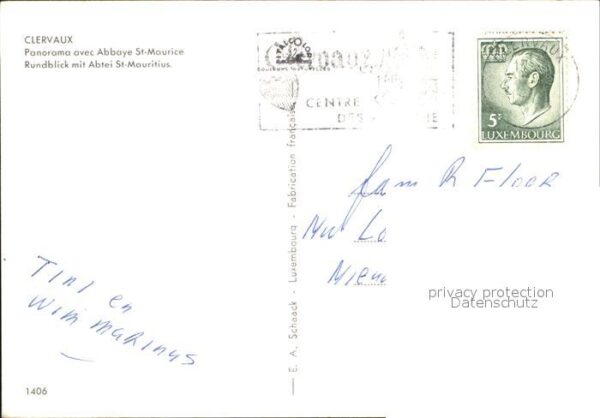 CLERVAUX
Panorama avec Abbaye St-Maurice
Rundblick mit Abtei St-Mauritius.
CENTRE
CLERVAUX
5F
LUXEMBOURG
Fam R Floor
Tini en
Wim Marinus
E. A. Schaack - Luxembourg - Fabrication française
privacy protection
Datenschutz
1406